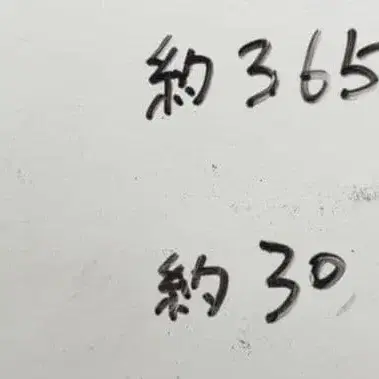 約365
約30